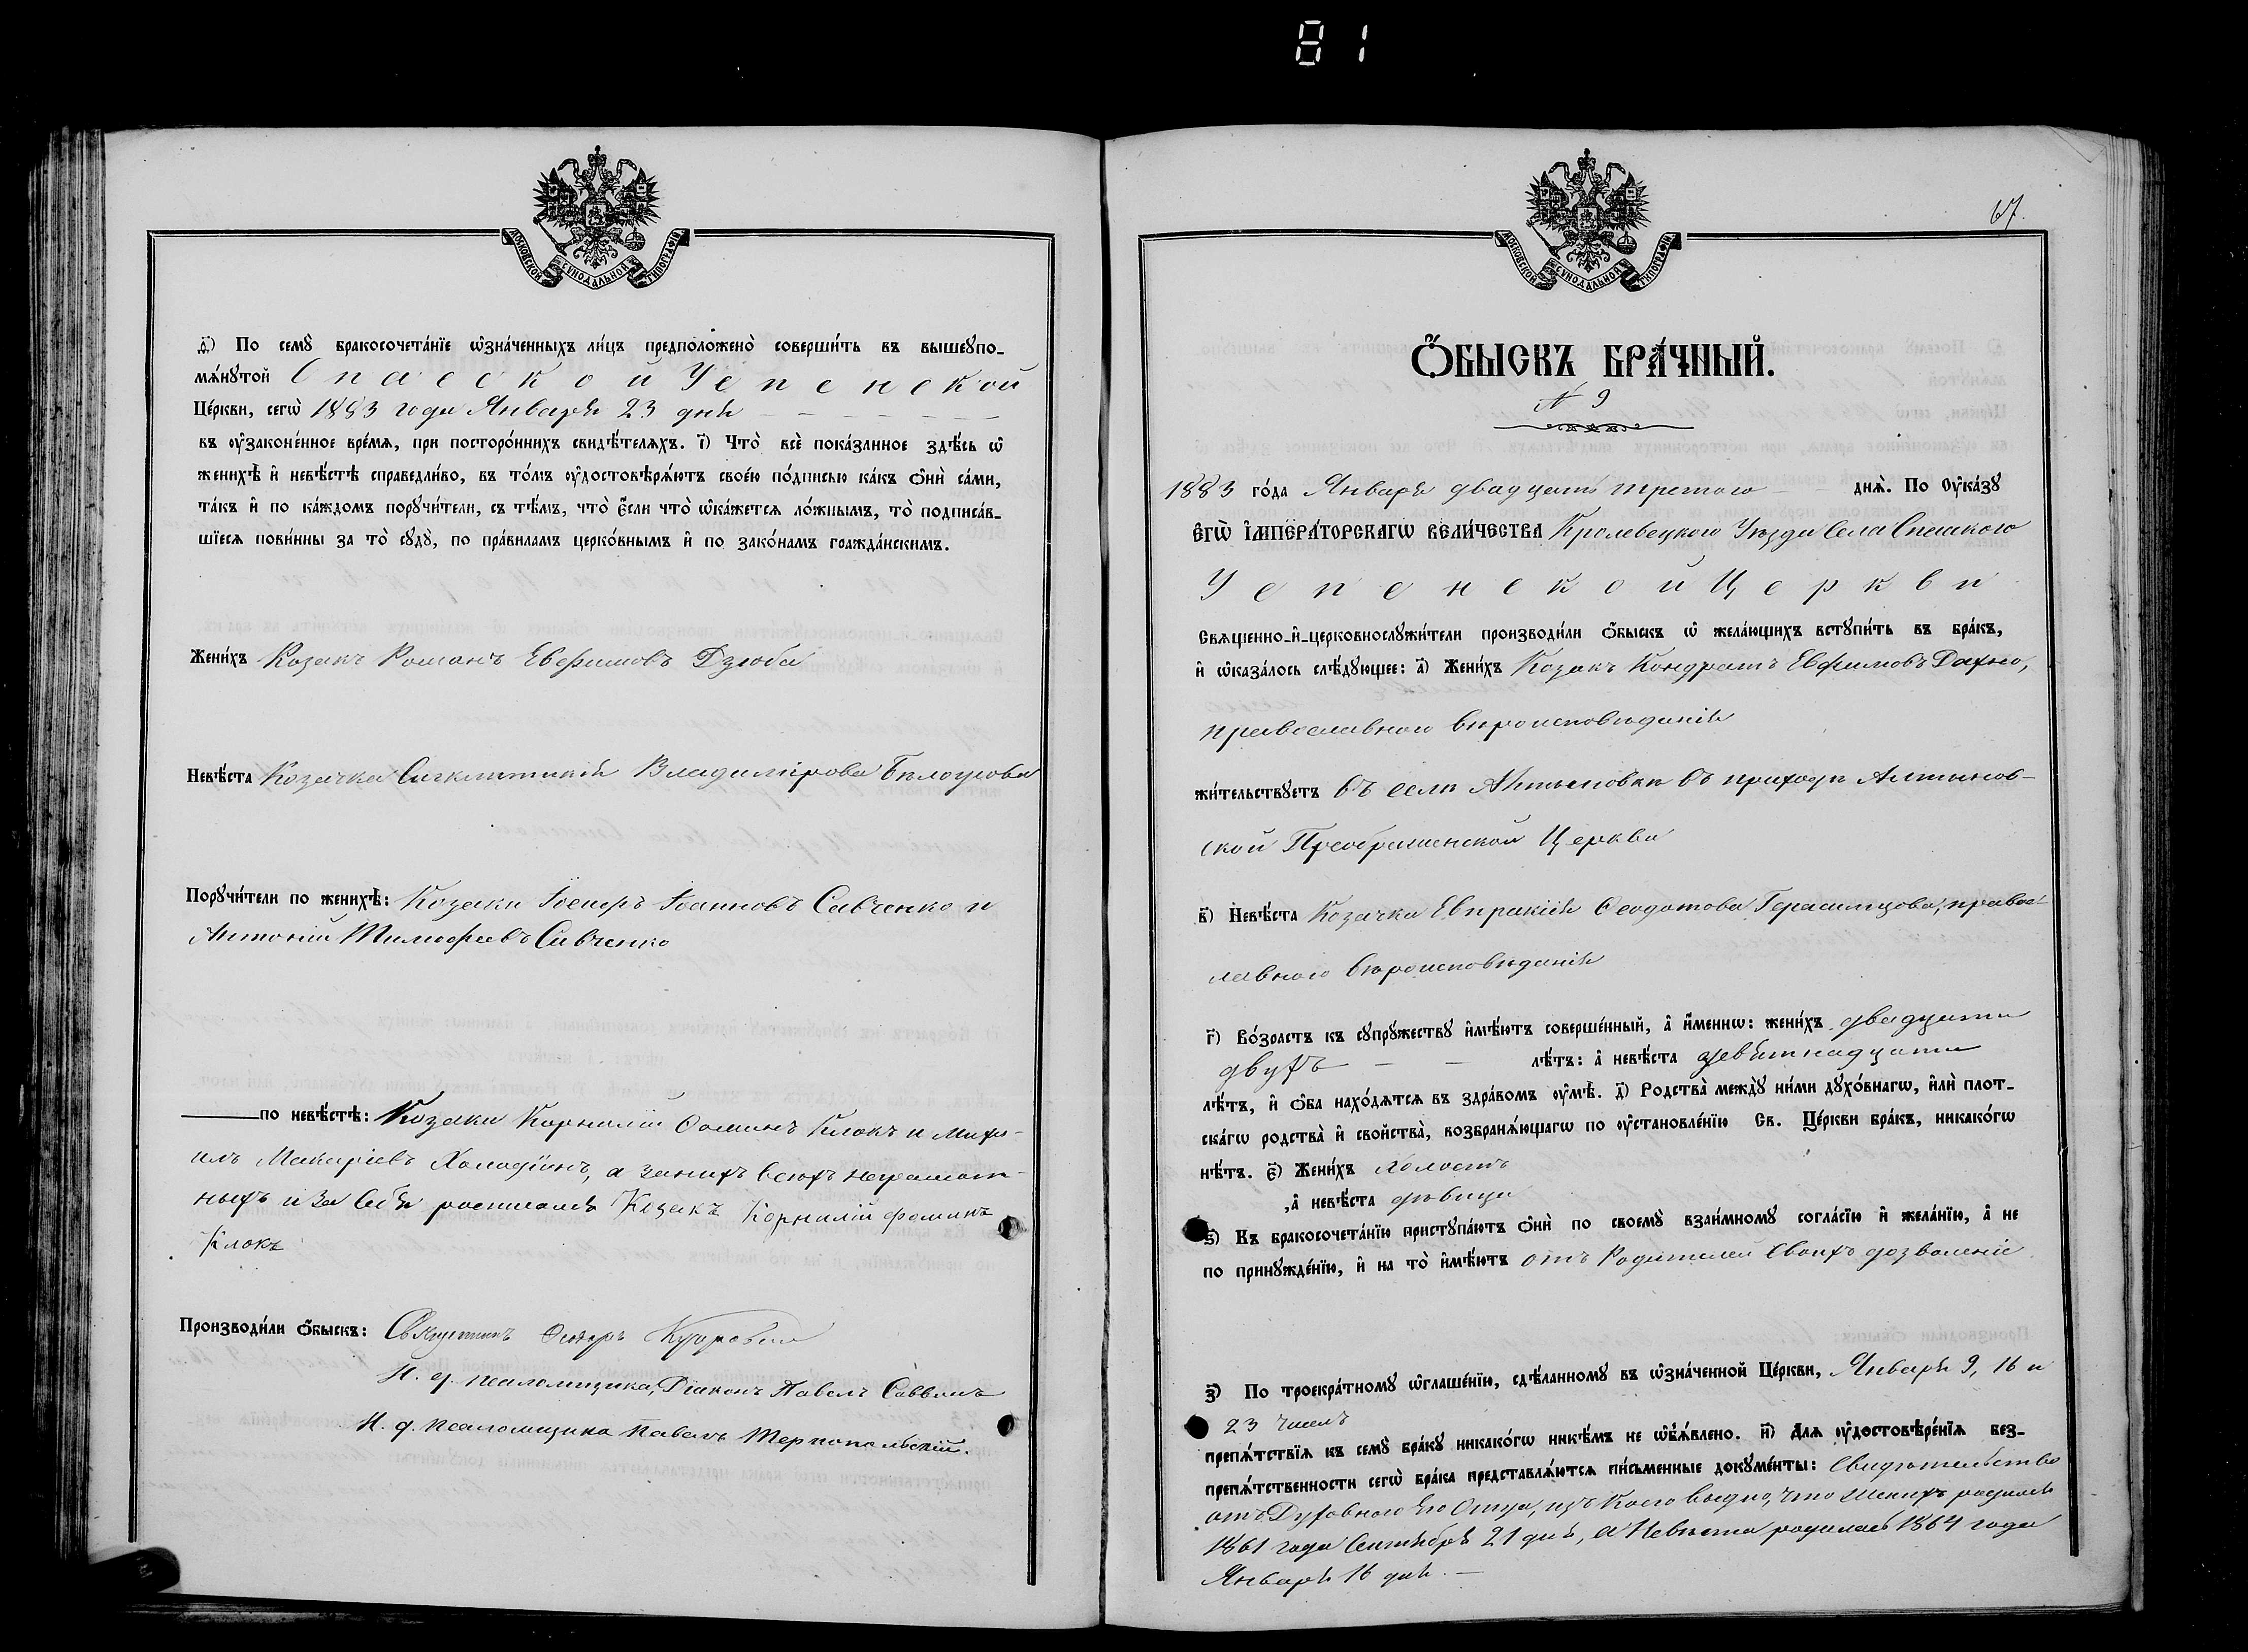 81
МОСКОВСКОЙ СѴНОДАЛЬНОЙ ТИПОГРАФІИ
ѳ҃) По семꙋ̀ бракосочета́нїе ѡ҆зна́ченныхъ ли́цъ предположено̀ соверши́ть въ вышеꙋпо-
мѧ́нꙋтой Спасской Успенской
Це́ркви, сегѡ̀ 1883 года Января 23 дня
въ ᲂу҆зако́ненное вре́мѧ, при посторо́ннихъ свидѣ́телѧхъ. і҃) Что̀ всѐ пока́занное здѣ́сь ѡ҆
женихѣ̀ и҆ невѣ́стѣ справедли́во, въ то́мъ ᲂу҆достовѣрѧ́ютъ свое́ю по́дписью ка́къ ѻ҆нѝ са́ми,
та́къ и҆ по ка́ждомъ порꙋчи́тели, съ тѣ́мъ, что̀ є҆́сли что̀ ѡ҆ка́жетсѧ ло́жнымъ, то̀ подписа́в-
шїесѧ пови́нны за то̀ сꙋдꙋ̀, по пра́виламъ церко́внымъ и҆ по зако́намъ гражда́нскимъ.
Жени́хъ Козакъ Романъ Евфимовъ Дзюба
Невѣ́ста Козачка Синклитикія Владимірова Бѣлоусова
Порꙋчи́тели по женихѣ̀: Козаки Іоанновъ Савченко и
Антоній Тимофеевъ Савченко
по невѣ́стѣ: Козаки Корнилій Ѳоминъ Клокъ и
Макаріевъ Холодіонъ, а за нихъ всѣхъ неграмот-
ныхъ и за себя росписался Козакъ Корнилій Фоминъ
Клокъ
Производи́ли ѻ҆́быскъ: Священникъ Ѳеодоръ
И. д. псаломщика, Діаконъ Павелъ Саввинъ
И. д. псаломщика Павелъ Тернопольскій.
67.
МОСКОВСКОЙ СѴНОДАЛЬНОЙ ТИПОГРАФІИ
Ѻ҆́БЫСКЪ БРА́ЧНЫЙ.
№ 9
1883 го́да Января двадцать третьяго днѧ̀. По ᲂу҆ка́зꙋ
Є҆ГѠ̀ И҆МПЕРА́ТОРСКАГѠ ВЕЛИ́ЧЕСТВА Кролевецкого Уѣзда Села Спаского
Успенской Церкви
Свѧще́нно-и҆-церковнослꙋжи́тели производи́ли ѻ҆́быскъ ѡ҆ жела́ющихъ встꙋпи́ть въ бра́къ,
и҆ ѡ҆каза́лось слѣ́дꙋющее: а҃) Жени́хъ Козакъ Кондратъ Евфимовъ Дахно,
православного вѣроисповѣданія
жи́тельствꙋетъ въ селѣ Антыповкѣ въ приходѣ Алтынов-
ской Преображенской Церкви
в҃) Невѣ́ста Козачка Евпраксія Ѳеодотова Герасимцова, правос-
лавного вѣроисповѣданія
г҃) Во́зрастъ къ сꙋпрꙋ́жествꙋ и҆мѣ́ютъ соверше́нный, а҆ и҆́менно: жени́хъ двадцати
двухъ лѣ́тъ: а҆ невѣ́ста девятнадцати
лѣ́тъ, и҆ ѻ҆́ба нахо́дѧтсѧ въ здра́вомъ ᲂу҆мѣ̀. д҃) Родства̀ междꙋ̀ ни́ми дꙋхо́внагѡ, и҆лѝ плот-
ска́гѡ родства̀ и҆ сво́йства̀, возбранѧ́ющагѡ по ᲂу҆становле́нїю Св. Це́ркви бра́къ, никако́гѡ
нѣ́тъ. є҃) Жени́хъ холостъ
,а҆ невѣ́ста дѣвица
ѕ҃) Къ бракосочета́нїю пристꙋпа́ютъ ѻ҆нѝ по своемꙋ̀ взаи́мномꙋ согла́сїю и҆ жела́нїю, а҆ не
по принꙋжде́нїю, и҆ на то̀ и҆мѣ́ютъ отъ Родителей своихъ дозволеніе
з҃) По троекра́тномꙋ ѡ҆глаше́нїю, сдѣ́ланномꙋ въ ѡ҆зна́ченной Це́ркви, Января 9, 16 и
23 числъ
препѧ́тствїѧ къ семꙋ̀ бра́кꙋ никако́гѡ никѣ́мъ не ѡ҆б̾ѧ́влено. и҃) Длѧ ᲂу҆достовѣре́нїѧ без-
препѧ́тственности сегѡ̀ бра́ка представлѧ́ютсѧ пи́сьменные докꙋме́нты: Свидѣтельство
отъ Духовного Его Отца, изъ коего видно, что Женихъ родился
1861 года Сентября 21 дня, а Невѣста родилась 1864 года
Января 16 дня.